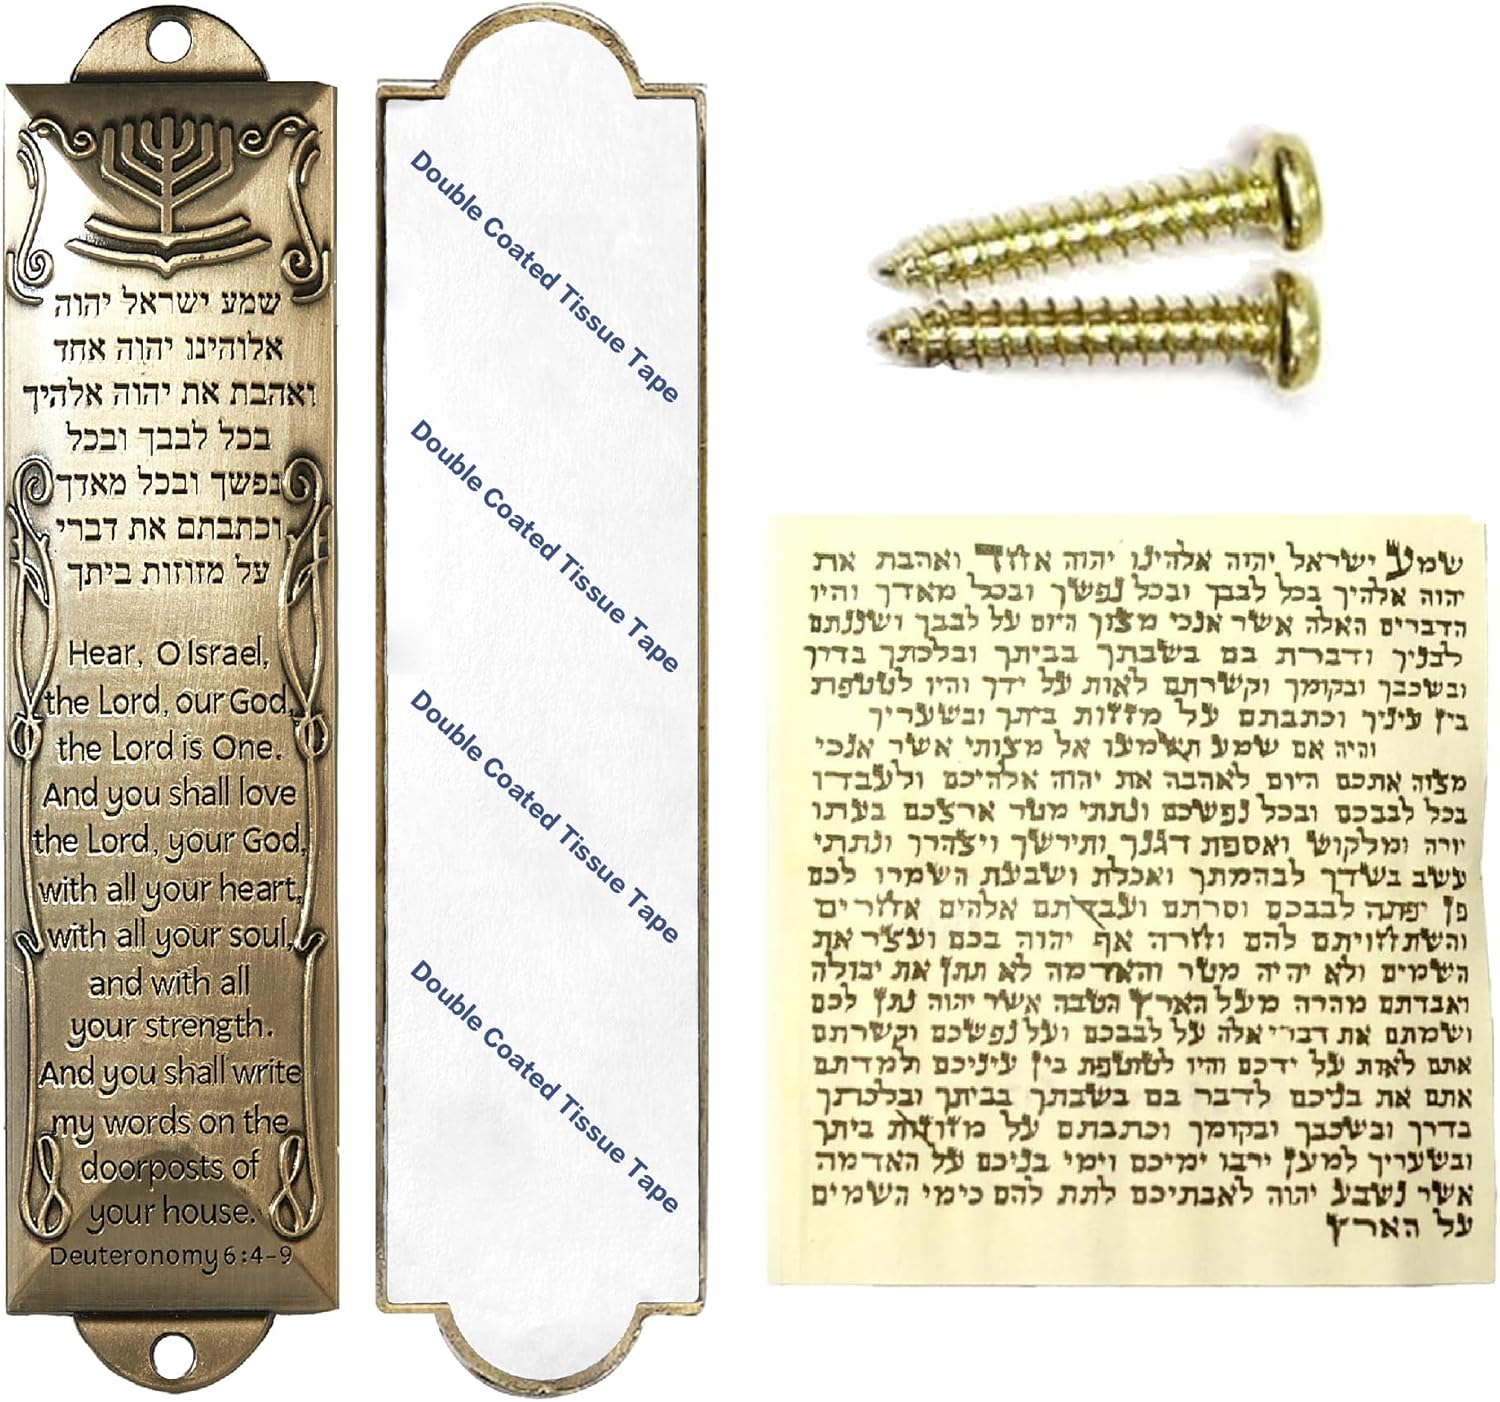 שמע ישראל יהוה
אלוהינו יהוה אחד
ואהבת את יהוה אלהיך
בכל לבבך ובכל
נפשך ובכל מאדך
וכתבתם את דברי
על מזוזות ביתך
Hear, O Israel,
the Lord, our God,
the Lord is One.
And you shall love
the Lord, your God,
with all your heart,
with all your soul,
and with all
your strength.
And you shall write
my words on the
doorposts of
your house.
Deuteronomy 6:4-9
Double Coated Tissue Tape
Double Coated Tissue Tape
Double Coated Tissue Tape
Double Coated Tissue Tape
שמע ישראל יהוה אלהינו יהוה אחד ואהבת את
יהוה אלהיך בכל לבבך ובכל נפשך ובכל מאדך והיו
הדברים האלה אשר אנכי מצוך היום על לבבך ושננתם
לבניך ודברת בם בשבתך בביתך ובלכתך בדרך
ובשכבך ובקומך וקשרתם לאות על ידך והיו לטטפת
בין עיניך וכתבתם על מזזות ביתך ובשעריך
והיה אם שמע תשמעו אל מצותי אשר אנכי
מצוה אתכם היום לאהבה את יהוה אלהיכם ולעבדו
בכל לבבכם ובכל נפשכם ונתתי מטר ארצכם בעתו
יורה ומלקוש ואספת דגנך ותירשך ויצהרך ונתתי
עשב בשדך לבהמתך ואכלת ושבעת השמרו לכם
פן יפתה לבבכם וסרתם ועבדתם אלהים אחרים
והשתחויתם להם וחרה אף יהוה בכם ועצר את
השמים ולא יהיה מטר והאדמה לא תתן את יבולה
ואבדתם מהרה מעל הארץ הטבה אשר יהוה נתן לכם
ושמתם את דברי אלה על לבבכם ועל נפשכם וקשרתם
אתם לאות על ידכם והיו לטוטפת בין עיניכם ולמדתם
אתם את בניכם לדבר בם בשבתך בביתך ובלכתך
בדרך ובשכבך ובקומך וכתבתם על מזוזות ביתך
ובשעריך למען ירבו ימיכם וימי בניכם על האדמה
אשר נשבע יהוה לאבתיכם לתת להם כימי השמים
על הארץ